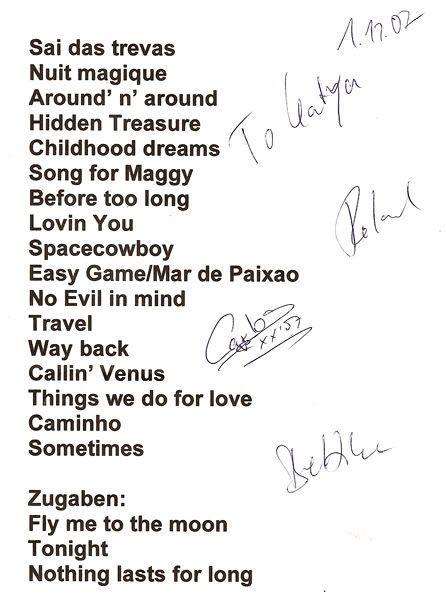 1.12.02
Sai das trevas
Nuit magique
Around' n' around
Hidden Treasure
To Katya
Childhood dreams
Song for Maggy
Before too long
Roland
Lovin You
Spacecowboy
Easy Game/Mar de Paixao
No Evil in mind
Travel
Way back
Callin' Venus
Things we do for love
Caminho
Sometimes
Zugaben:
Fly me to the moon
Tonight
Nothing lasts for long